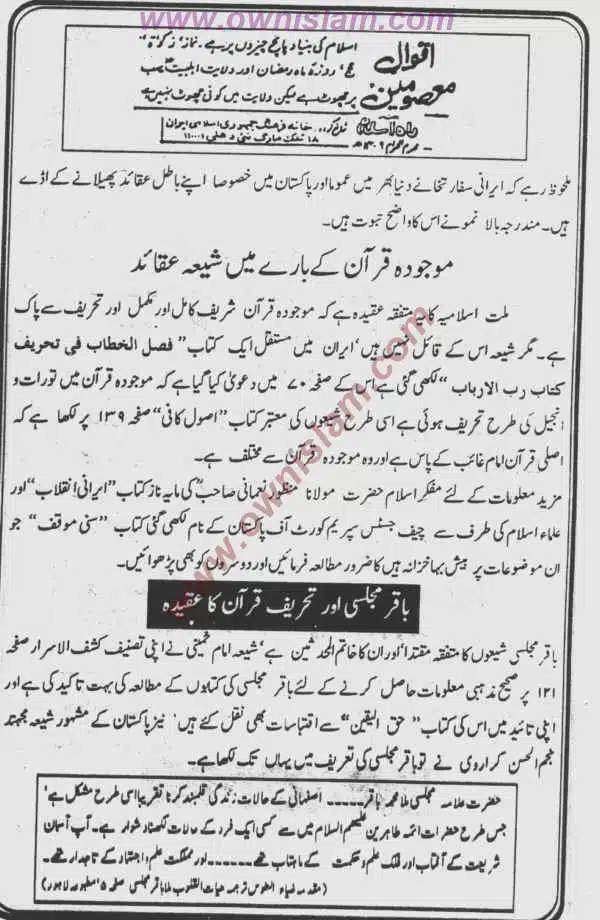 www.ownislam.com
اسلام کی بنیاد پانچ چیزوں پر ہے۔ نماز، زکواۃ،
اقوال
حج، روزہ ماہ رمضان اور ولایت اہلبیت
معصومین
پر چھوٹ ہے لیکن ولایت میں کوئی چھوٹ نہیں ہے
خانہ فرہنگ جمہوری اسلامی ایران
۱۸ تلک مارگ نئی دھلی
ملحوظ رہے کہ ایرانی سفارتخانے دنیا بھر میں عموما اور پاکستان میں خصوصا اپنے باطل عقائد پھیلانے کے اڈے
ہیں۔ مندرجہ بالا نمونے اس کا واضح ثبوت ہیں۔
موجودہ قرآن کے بارے میں شیعہ عقائد
ملت اسلامیہ کا یہ متفقہ عقیدہ ہے کہ موجودہ قرآن شریف کامل اور مکمل اور تحریف سے پاک
ہے۔ مگر شیعہ اس کے قائل نہیں ہیں، ایران میں مستقل ایک کتاب "فصل الخطاب فی تحریف
کتاب رب الارباب" لکھی گئی ہے اس کے صفحہ ۷۰ میں دعویٰ کیا گیا ہے کہ موجودہ قرآن میں تورات و
انجیل کی طرح تحریف ہوئی ہے اسی طرح شیعوں کی معتبر کتاب "اصول کافی" صفحہ ۱۳۹ پر لکھا ہے کہ
اصلی قرآن امام غائب کے پاس ہے اور وہ موجودہ قرآن سے مختلف ہے۔
مزید معلومات کے لئے مفکر اسلام حضرت مولانا منظور نعمانی صاحبؒ کی مایہ ناز کتاب "ایرانی انقلاب" اور
علماء اسلام کی طرف سے چیف جسٹس سپریم کورٹ آف پاکستان کے نام لکھی گئی کتاب "سنی موقف" جو
ان موضوعات پر بیش بہا خزانہ ہیں کا ضرور مطالعہ فرمائیں اور دوسروں کو بھی پڑھوائیں۔
باقر مجلسی اور تحریف قرآن کا عقیدہ
باقر مجلسی شیعوں کا متفقہ مقتدا، اور ان کا خاتم المحدثین ہے، شیعہ امام خمینی نے اپنی تصنیف کشف الاسرار صفحہ
۱۲۱ پر صحیح مذہبی معلومات حاصل کرنے کے لئے باقر مجلسی کی کتابوں کے مطالعہ کی بہت تاکید کی ہے اور
اپنی تائید میں اس کی کتاب "حق الیقین" سے اقتباسات بھی نقل کئے ہیں، نیز پاکستان کے مشہور شیعہ مجتہد
نجم الحسن کراروی نے تو باقر مجلسی کی تعریف میں یہاں تک لکھا ہے۔
حضرت علامہ مجلسی ملا محمد باقر ۔۔۔۔۔ اصفہانی کے حالات زندگی کو قلمبند کرنا تقریبا اسی طرح مشکل ہے،
جس طرح حضرات ائمہ طاہرین علیہم السلام میں سے کسی ایک فرد کے حالات لکھنا دشوار ہے۔ آپ آسمان
شریعت کے آفتاب اور فلک علم و حکمت کے ماہتاب تھے ۔۔۔۔۔ اور مملکت علم و اجتہاد کے تاجدار تھے۔
(مقدمہ ضیاء العلوس ترجمہ حیات القلوب ملا باقر مجلسی صفحہ ۵ مطبوعہ لاہور)
www.ownislam.com